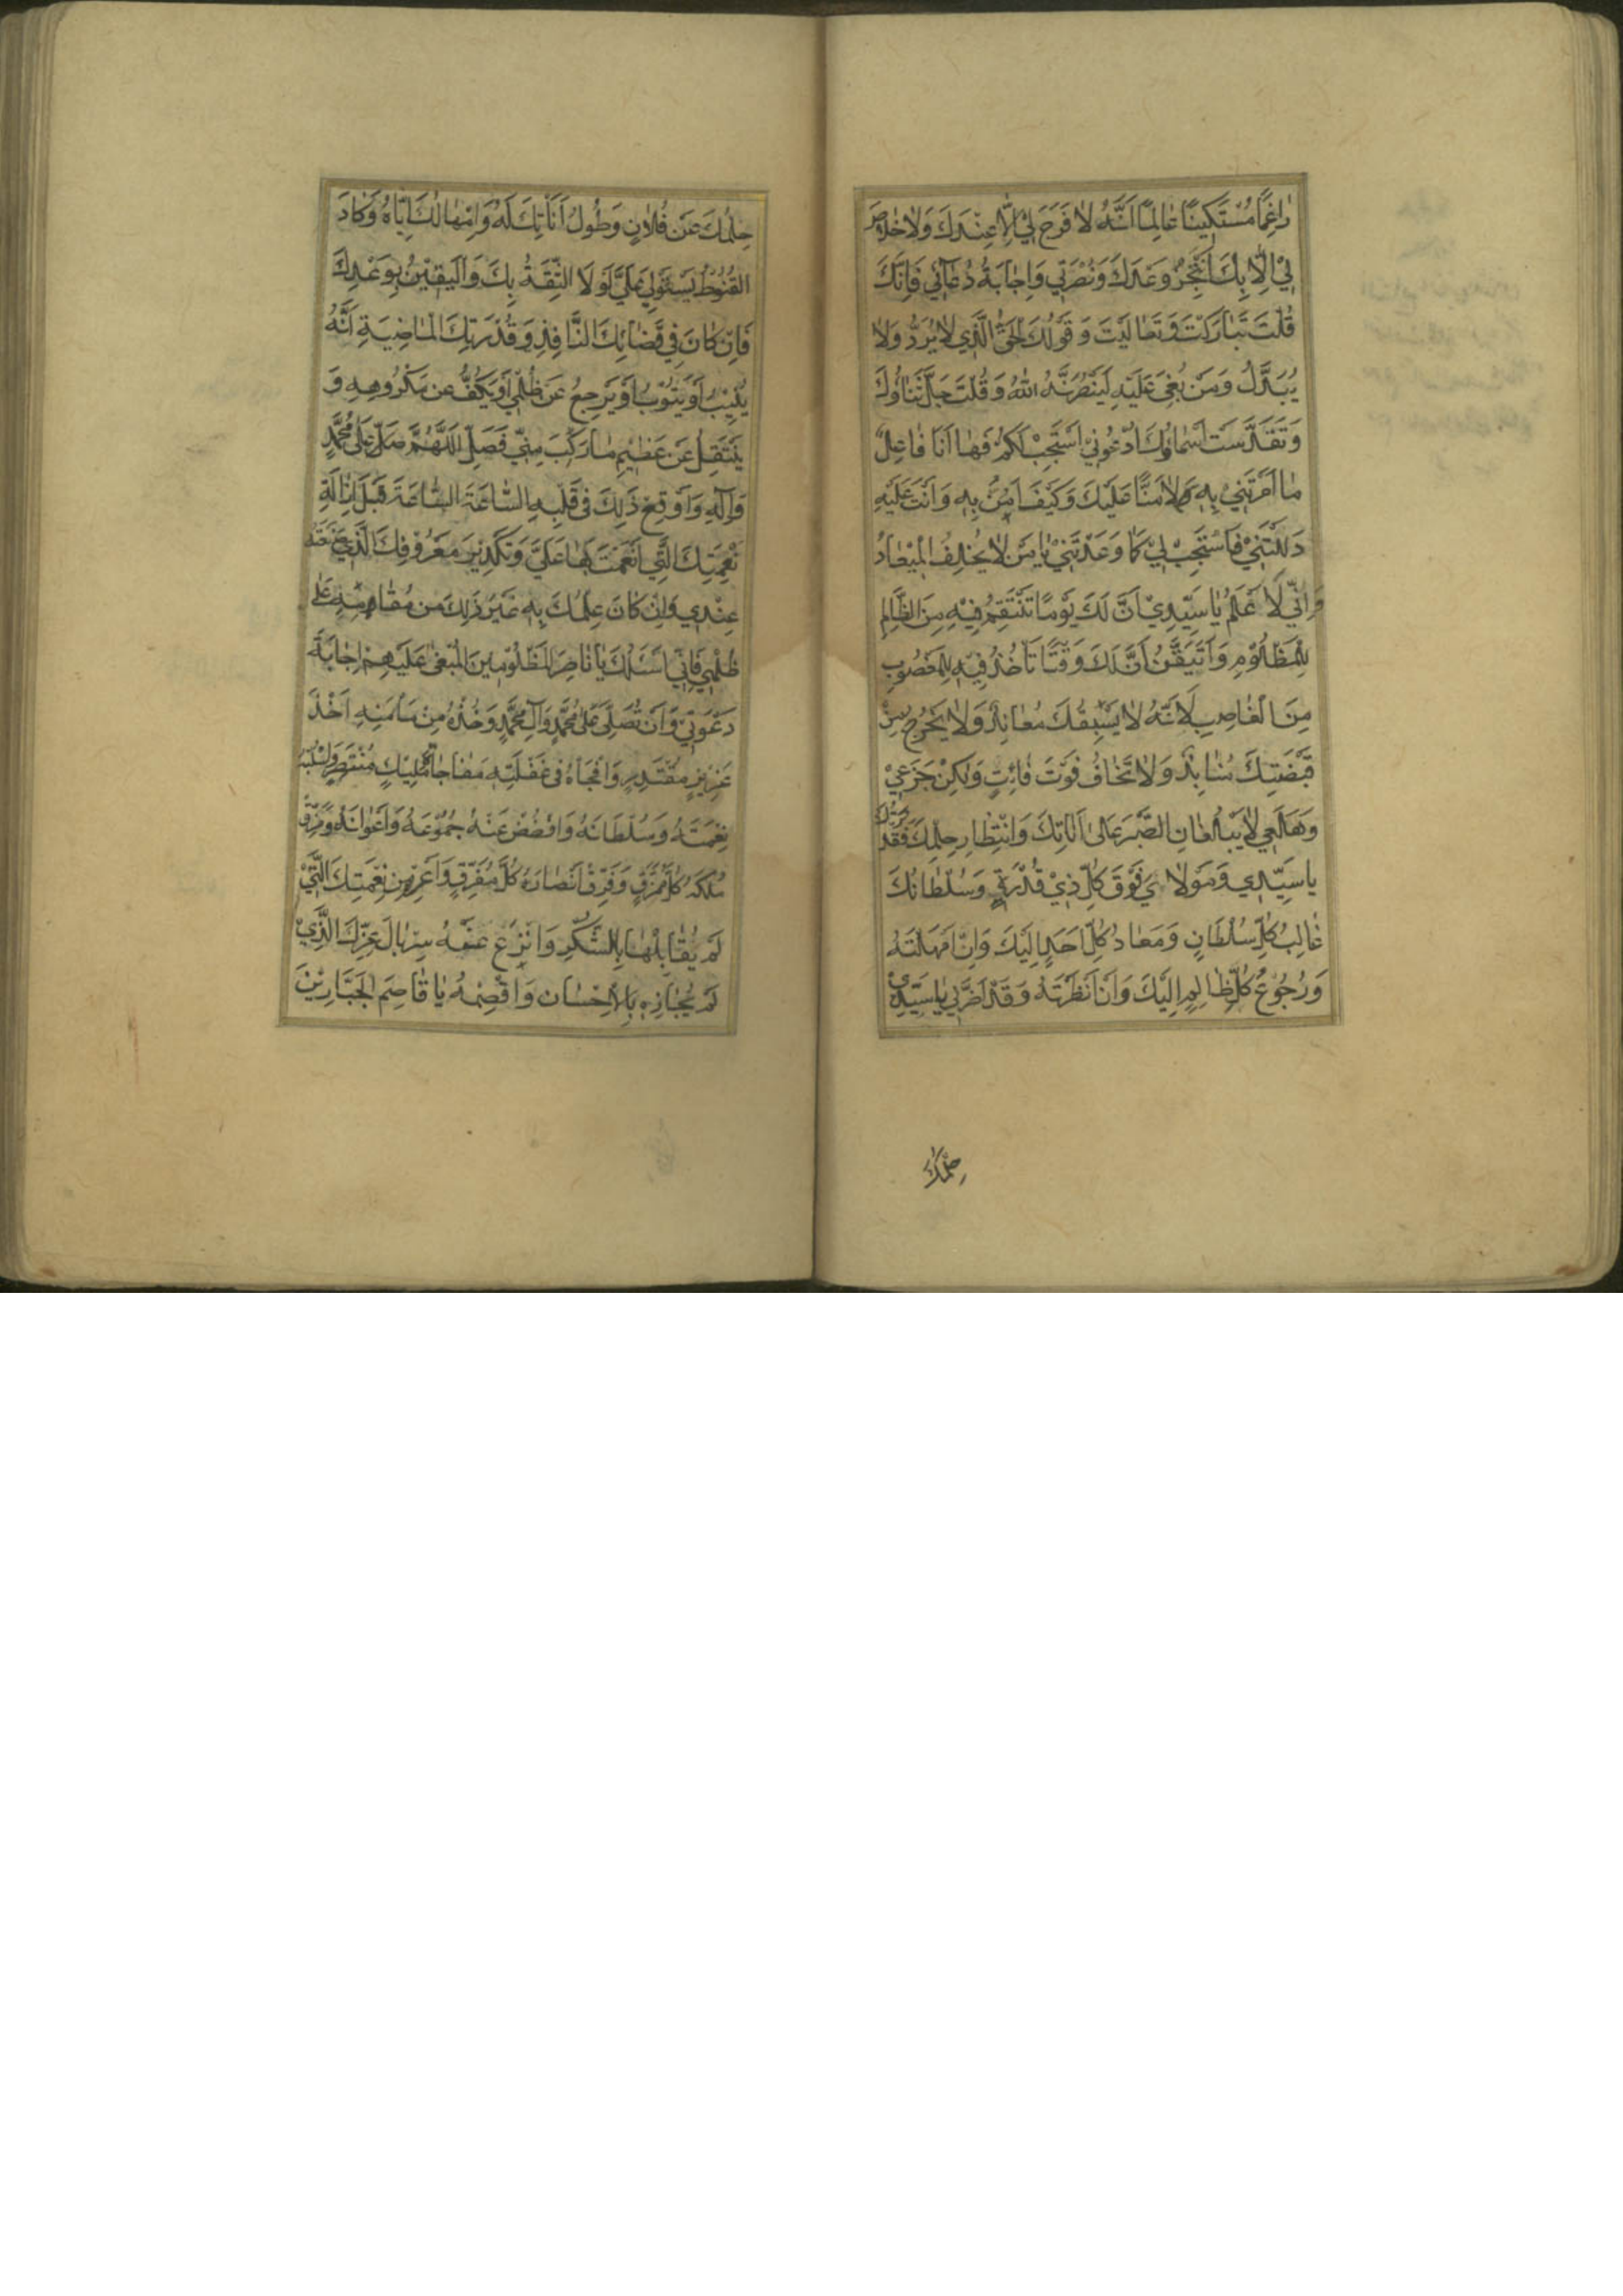 رٰاغِمًا مُسْتَكِينًا عٰالِمًا اَنَّهُ لٰا فَرَجَ لِيْ اِلَّا عِنْدَكَ وَلٰا خَلٰاصَ
لِيْ اِلّٰا بِكَ اَنْتَجِزُ وَعْدَكَ وَنُصْرَتِي وَاِجٰابَةَ دُعٰآئِي فَاِنَّكَ
قُلْتَ تَبٰارَكْتَ وَتَعٰالَيْتَ وَقَوْلُكَ الْحَقُّ الَّذِي لٰا يُرَدُّ وَلٰا
يُبَدَّلُ وَمَنْ بُغِيَ عَلَيْهِ لَيَنْصُرَنَّهُ اللهُ وَقُلْتَ جَلَّ ثَنٰاؤُكَ
وَتَقَدَّسَتْ اَسْمٰاؤُكَ اُدْعُونِيْ اَسْتَجِبْ لَكُمْ فَهٰا اَنَا فٰاعِلٌ
مٰا اَمَرْتَنِيْ بِهِ وَلٰا مَنًّا عَلَيْكَ وَكَيْفَ اَمُنُّ بِهِ وَاَنْتَ عَلَيْهِ
دَلَلْتَنِيْ فَاسْتَجِبْ لِيْ كَمٰا وَعَدْتَنِيْ يٰا مَنْ لٰا يُخْلِفُ الْمِيْعٰادَ
وَاِنِّي لَاَعْلَمُ يٰا سَيِّدِيْ اَنَّ لَكَ يَوْمًا تَنْتَقِمُ فِيْهِ مِنَ الظّٰالِمِ
لِلْمَظْلُوْمِ وَاَتَيَقَّنُ اَنَّ لَكَ وَقْتًا تَأْخُذُ فِيْهِ لِلْمَغْصُوبِ
مِنَ الْغٰاصِبِ لِاَنَّهُ لٰا يَسْبِقُكَ مُعٰانِدٌ وَلٰا يَخْرُجُ مِنْ
قَبْضَتِكَ مُنٰابِذٌ وَلٰا تَخٰافُ فَوْتَ فٰائِتٍ وَلٰكِنْ جَزَعِيْ
وَهَلَعِي لٰا يَبْلُغٰانِ الصَّبْرَ عَلىٰ اَنٰاتِكَ وَانْتِظٰارِ حِلْمِكَ فَقُدْرَتُكَ
يٰا سَيِّدِي وَمَوْلٰايَ فَوْقَ كُلِّ ذِيْ قُدْرَةٍ وَسُلْطٰانُكَ
غٰالِبُ كُلِّ سُلْطٰانٍ وَمَعٰادُ كُلِّ اَحَدٍ اِلَيْكَ وَاِنْ اَمْهَلْتَهُ
وَرُجُوْعُ كُلِّ ظٰالِمٍ اِلَيْكَ وَاِنْ اَنْظَرْتَهُ وَقَدْ اَضَرَّ بِي يٰا سَيِّدِيْ
حِلْمُكَ
حِلْمُكَ عَنْ فُلٰانٍ وَطُولُ اَنٰاتِكَ لَهُ وَاِمْهٰالُكَ اِيّٰاهُ وَكٰادَ
الْقُنُوْطُ يَسْتَوْلِي عَلَيَّ لَوْلَا الثِّقَةُ بِكَ وَالْيَقِيْنُ بِوَعْدِكَ
فَاِنْ كٰانَ فِي قَضٰائِكَ النّٰافِذِ وَقُدْرَتِكَ الْمٰاضِيَةِ اَنَّهُ
يُنِيْبُ اَوْ يَتُوْبُ اَوْ يَرْجِعُ عَنْ ظُلْمِي اَوْ يَكُفُّ عَنْ مَكْرُوهِهِ وَ
يَنْتَقِلُ عَنْ عَظِيْمِ مٰا رَكِبَ مِنِّي فَصَلِّ اللّٰهُمَّ صَلِّ عَلىٰ مُحَمَّدٍ
وَاٰلِهِ وَاَوْقِعْ ذٰلِكَ فِي قَلْبِهِ السّٰاعَةَ السّٰاعَةَ قَبْلَ اِزٰالَةِ
نِعْمَتِكَ الَّتِي اَنْعَمْتَ بِهٰا عَلَيَّ وَتَكْدِيْرِ مَعْرُوْفِكَ الَّذِي صَنَعْتَهُ
عِنْدِي وَاِنْ كٰانَ عِلْمُكَ بِهِ غَيْرَ ذٰلِكَ مِنْ مُقٰامِهِ عَلىٰ
ظُلْمِي فَاِنِّي اَسْئَلُكَ يٰا نٰاصِرَ الْمَظْلُوْمِيْنَ الْمَبْغِيِّ عَلَيْهِمْ اِجٰابَةَ
دَعْوَتِيْ وَاَنْ تُصَلِّيَ عَلىٰ مُحَمَّدٍ وَاٰلِ مُحَمَّدٍ وَخُذْهُ مِنْ مَأْمَنِهِ اَخْذَ
عَزِيْزٍ مُقْتَدِرٍ وَافْجَأْهُ فِي غَفْلَتِهِ مُفٰاجٰاةَ مَلِيْكٍ مُنْتَصِرٍ وَاسْلُبْهُ
نِعْمَتَهُ وَسُلْطٰانَهُ وَافْضُضْ عَنْهُ جُمُوْعَهُ وَاَعْوٰانَهُ وَمَزِّقْ
مُلْكَهُ كُلَّ مُمَزَّقٍ وَفَرِّقْ اَنْصٰارَهُ كُلَّ مُفَرَّقٍ وَاَعْرِهِ مِنْ نِعْمَتِكَ الَّتِيْ
لَمْ يُقٰابِلْهٰا بِالشُّكْرِ وَانْزِعْ عَنْهُ سِرْبٰالَ عِزِّكَ الَّذِيْ
لَمْ يُجٰازِهِ بِالْاِحْسٰانِ وَاقْصِمْهُ يٰا قٰاصِمَ الْجَبّٰارِيْنَ